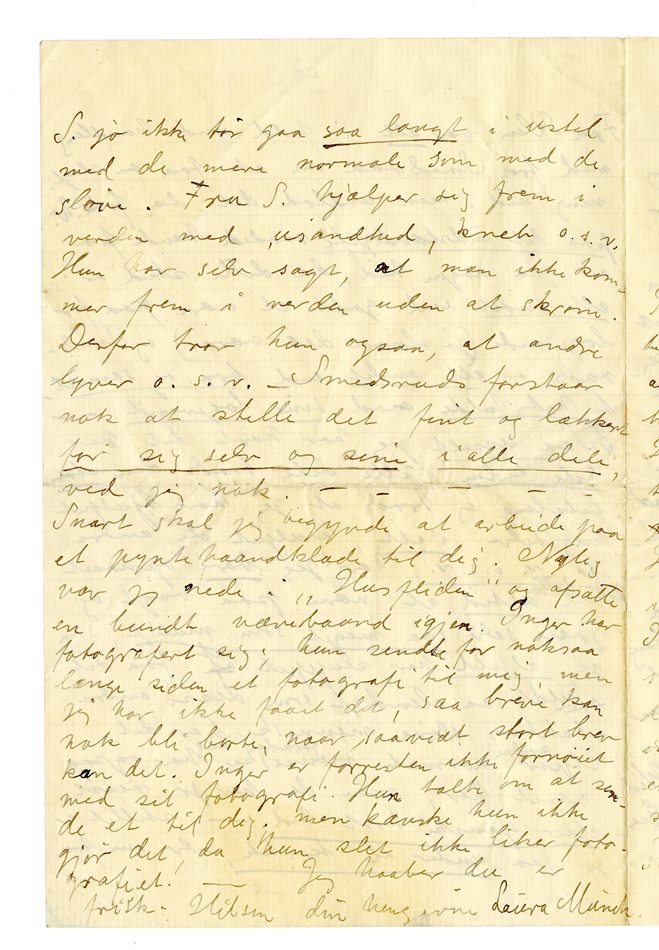 S. jo ikke tør gaa saa langt i ustel
med de mere normale som med de
sløve. Fru S. hjælper sig frem i
verden med usandhed, kneb o.s.v.
Hun har selv sagt, at man ikke kom-
mer frem i verden uden at skrøne.
Derfor tror hun ogsaa, at andre
lyver o.s.v. – Smedsruds forstaar
nok at stelle det fint og lækkert
for sig selv og sine i alle dele,
ved jeg nok. – – – – –
Snart skal jeg begynde at arbeide paa
et pyntehaandklæde til dig. Nylig
var jeg nede i „Husfliden" og afsatte
en bundt vævebaand igjen. Inger har
fotografert sig; hun sendte for noksaa
længe siden et fotografi til mig, men
jeg har ikke faaet det, saa breve kan
nok bli borte, naar saavidt stort brev
kan det. Inger er forresten ikke fornøiet
med sit fotografi. Hun talte om at sen-
de et til dig. men kanske hun ikke
gjør det, da hun slet ikke liker foto-
grafiet. — Jeg haaber du er
frisk. Hilsen din hengivne Laura Munch.